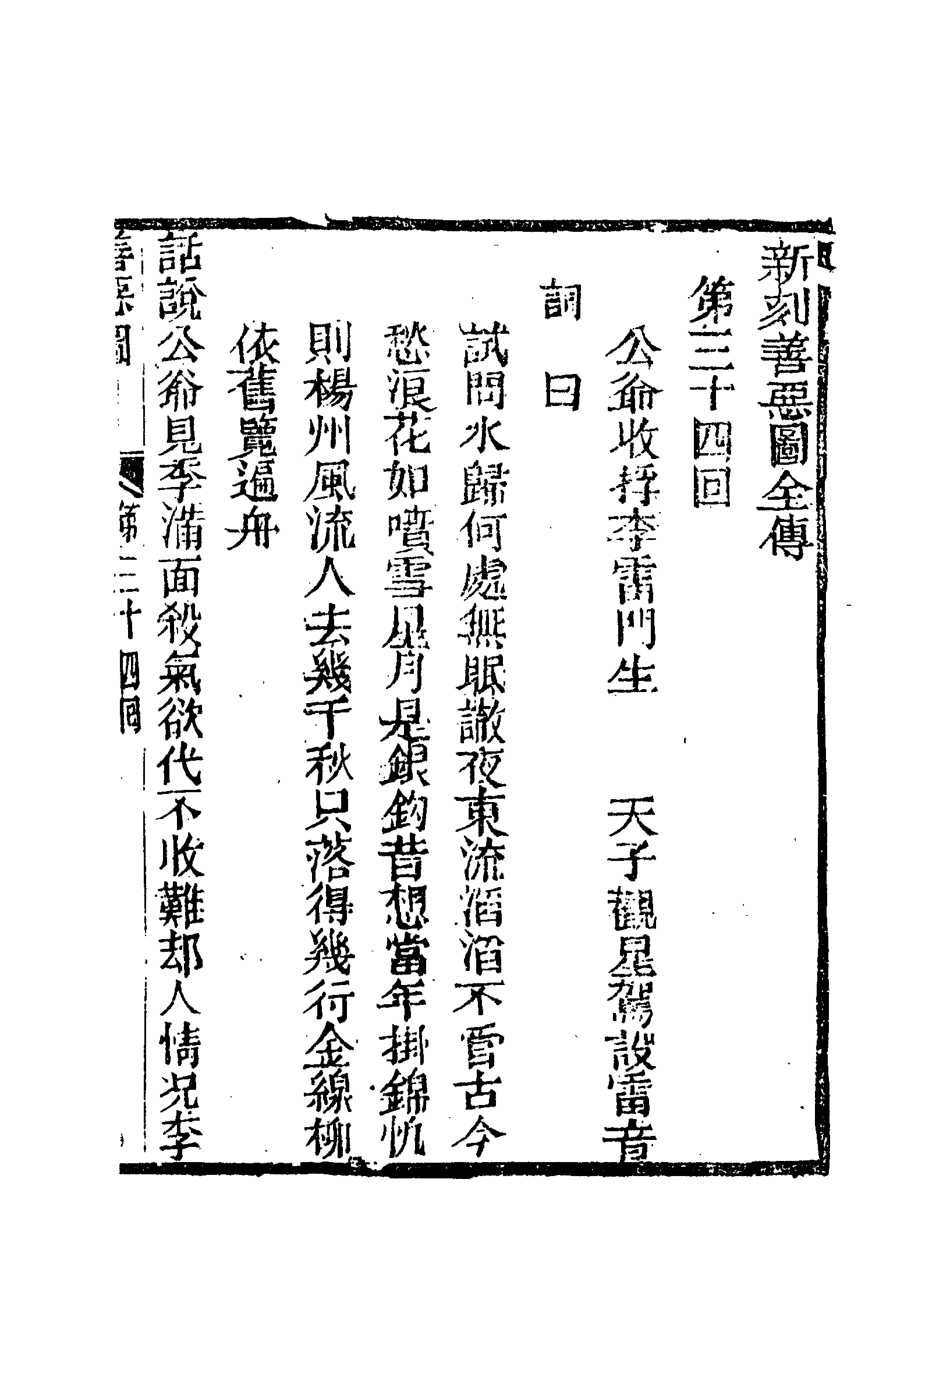 新刻善惡圖全傳
第三十四回
公爺收捊李雷門生　天子觀星駕設雷音
詞曰
試問水歸何處無眠讄夜東流滔滔不雪古今
愁浪花如噴雪星月是銀鈎昔想當年掛錦忛
則楊州風流人去幾千秋只落得幾行金線柳
依舊覽遍舟
話說公爺見李滿面殺氣欲代不收難却人情况李
善惡圖　第三十四回